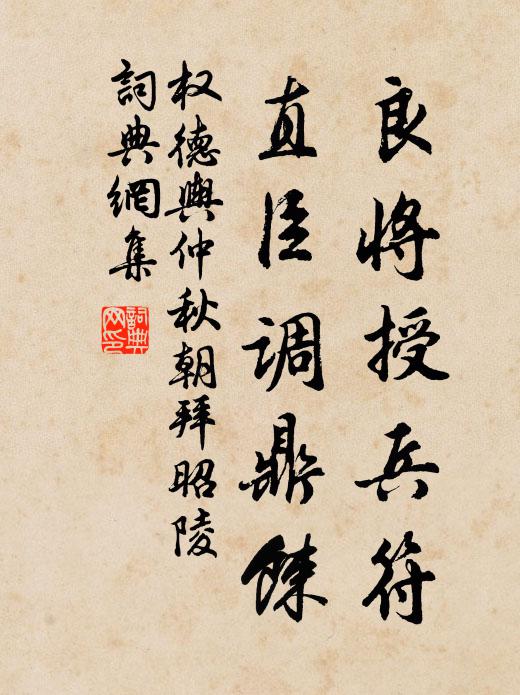 良将授兵符
直臣调鼎餗
权德舆仲秋朝拜昭陵
词典網集
詞典
网印